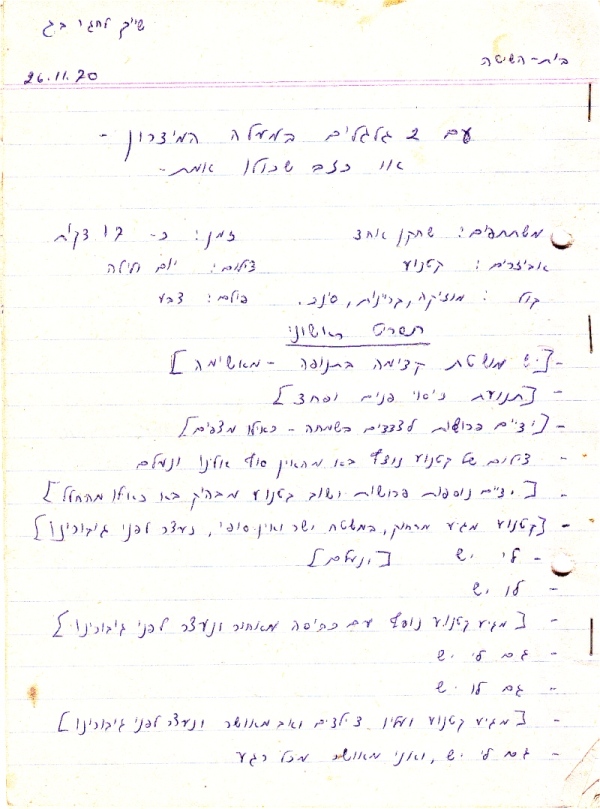 שייך לחגי ב.ג
בית-השיטה
26.11.70
עם 2 גלגלים במעלה המיצרון -
או כזב שכולו אמת -
משתתפים: שחקן אחד זמן: כ- 12 דקות
אביזרים: קטנוע צילום: יום ולילה
קול: מוזיקה, קריינות, סינכ. פילם: צבע
תסריט ראשוני
- [יד מושטת קדימה בתנופה - מאשימה]
- [תנועת כיסוי פנים ופחד]
- [ידיים פרושות לצדדים בשמחה - כאילו מצפים]
צילום של קטנוע נוסף בא מהאין סוף אלינו ונעלם
- [ידיים נוספות פרושות ושוב קטנוע מבהיק בא כאילו מהחלל]
- [קטנוע מגיע מרחוק, במשטח ישר ואין-סופי, נעצר לפני גיבורינו]
- לי יש [ונעלם]
- לו יש
- [מגיע קטנוע נוסף עם כתיסה מאחור ונעצר לפני גיבורינו]
- גם לי יש
- גם לו יש
- [מגיע קטנוע ועליו 3 ילדים ואב מאושר ונעצר לפני גיבורינו]
- גם לי יש, ואני מאושר מכל רגע